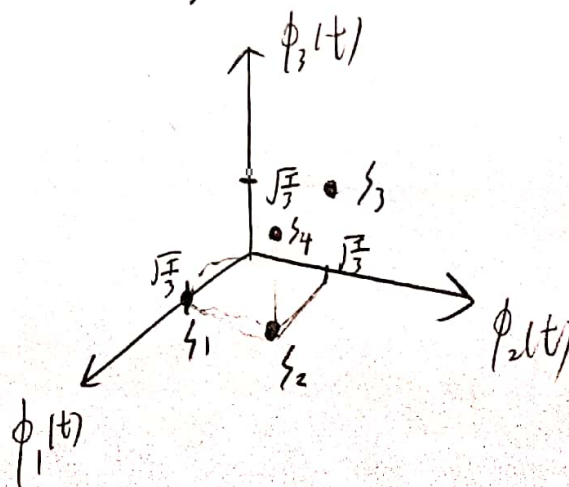 ϕ₃(t)
√(T/3) s₃
s₄
√(T/3) √(T/3)
s₁
s₂
ϕ₂(t)
ϕ₁(t)